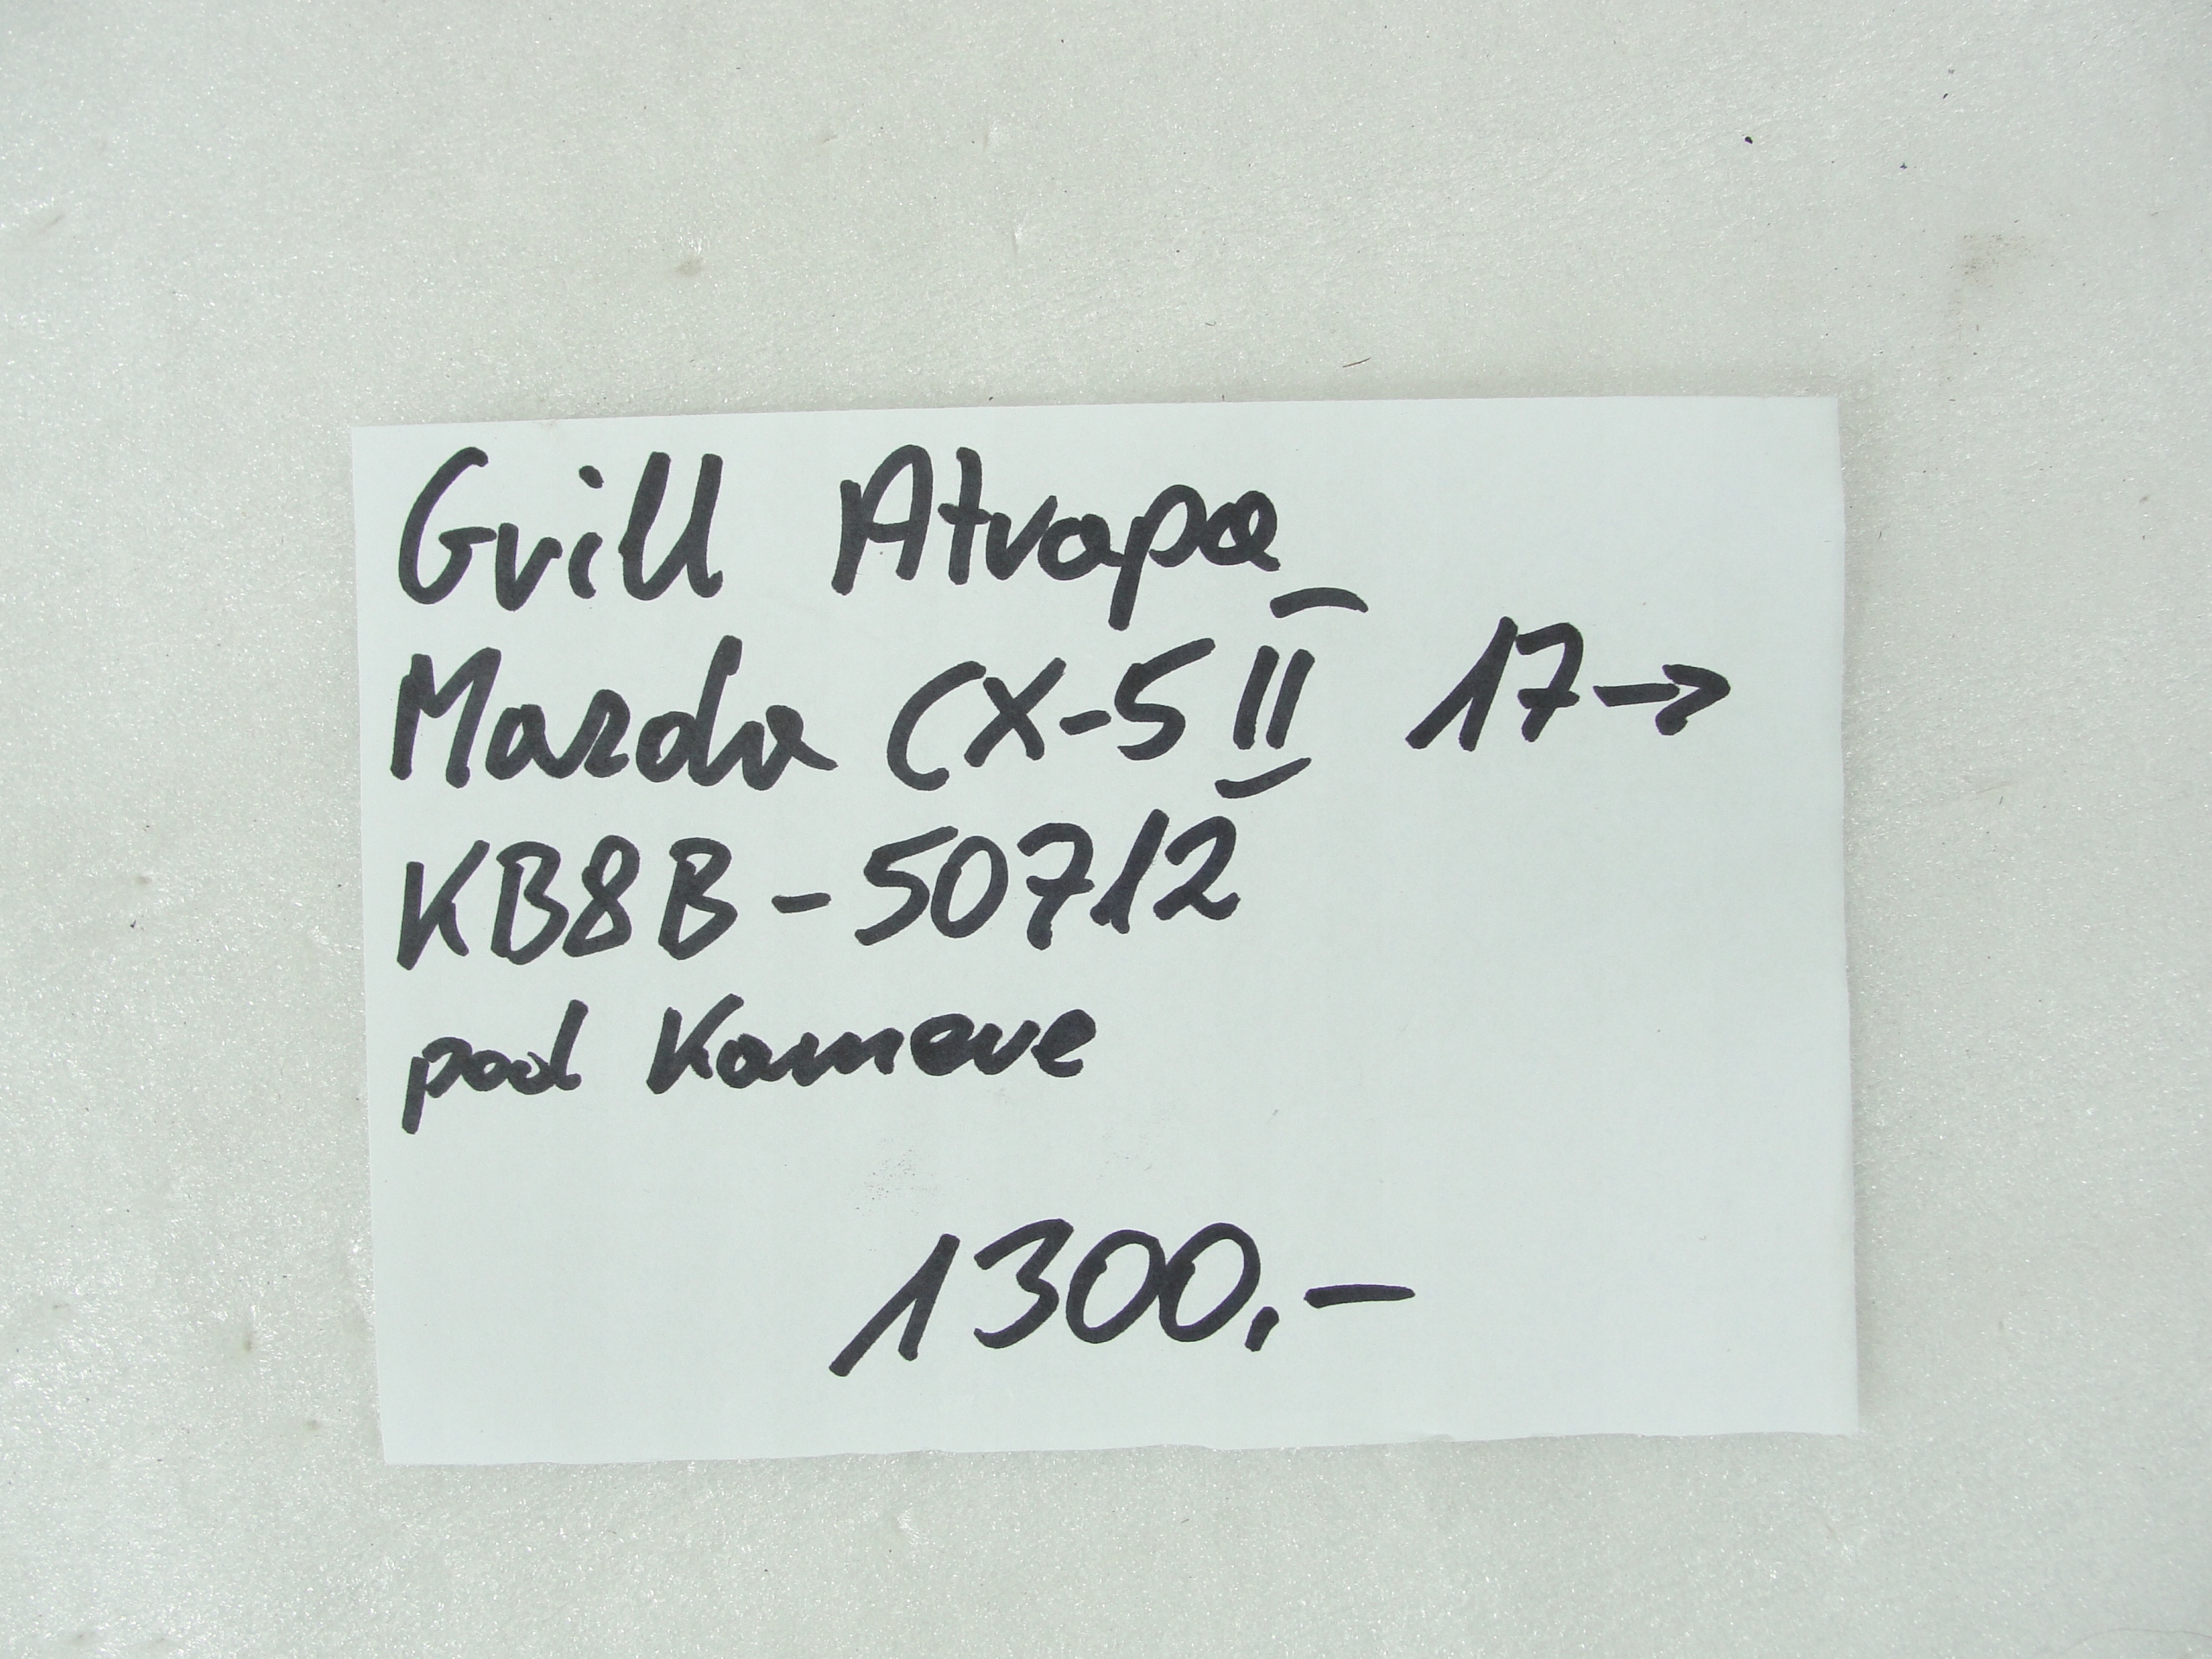 Grill Atrapa
Mazda CX-5 II 17→
KB8B-50712
pod Kamere
1300,-